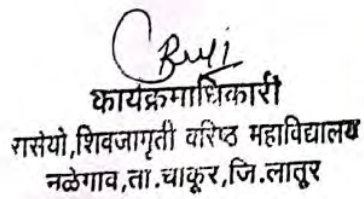 कार्यक्रमाधिकारी
रासेयो,शिवजागृती वरिष्ठ महाविद्यालय
नळेगाव,ता.चाकूर,जि.लातूर